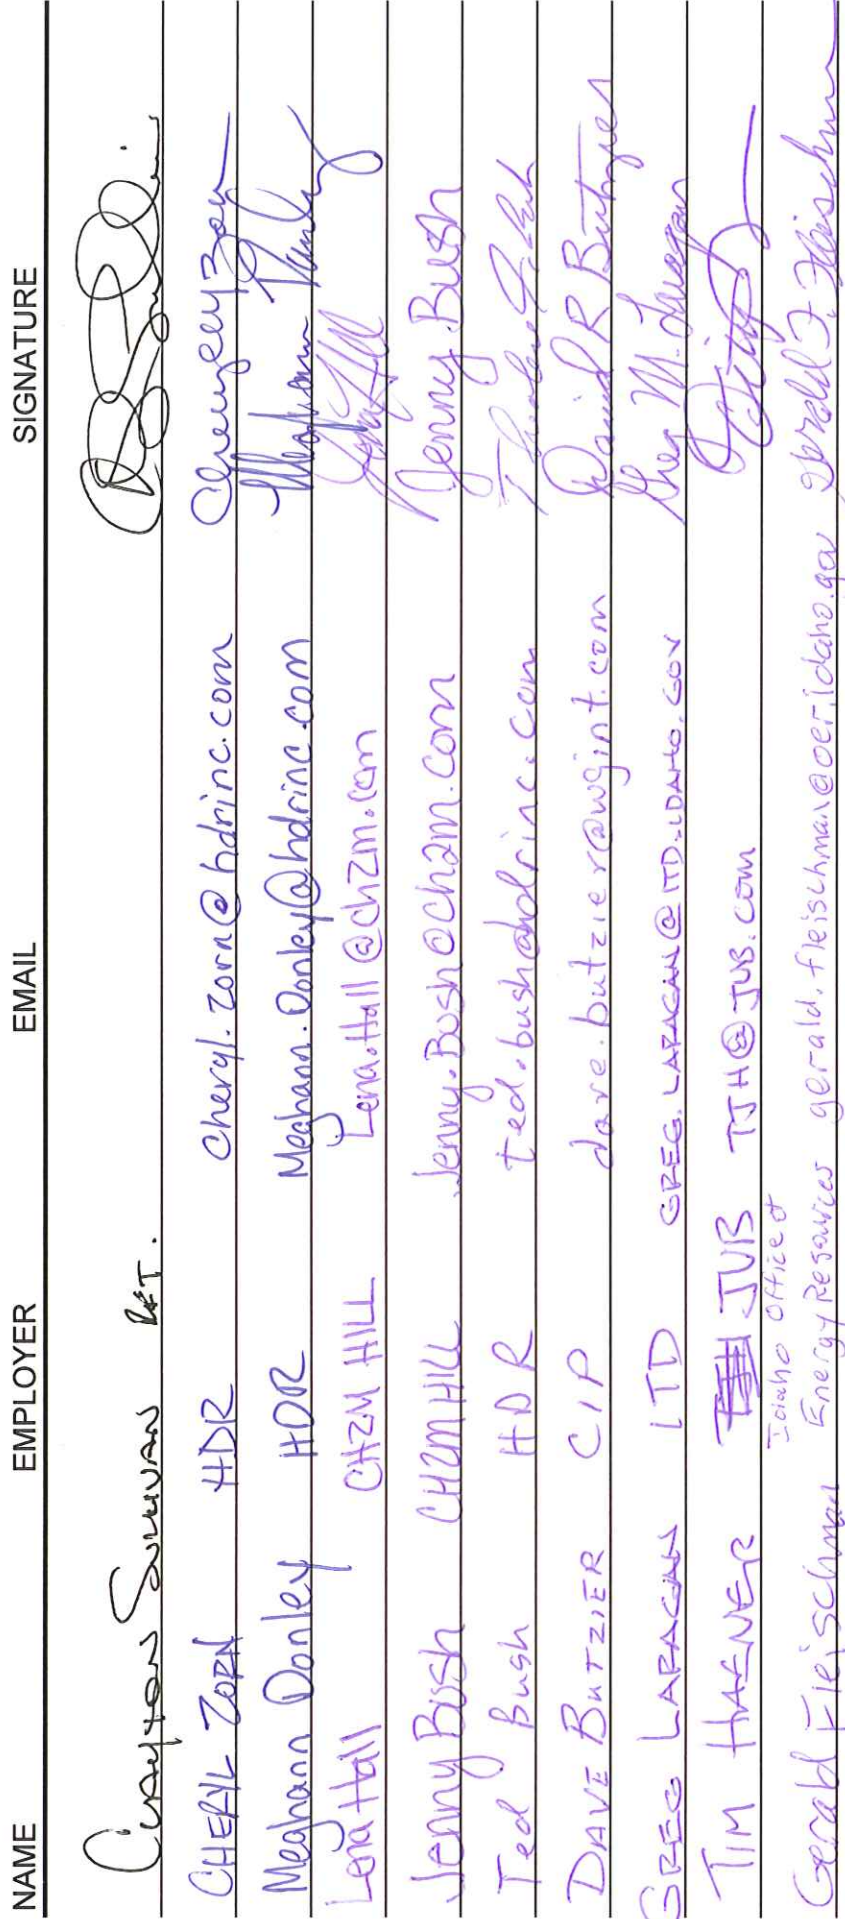 NAME EMPLOYER EMAIL SIGNATURE
CLAYTON SULLIVAN
CHERYL ZORN HDR Cheryl.Zorn@hdrinc.com
Meghann Donley HDR Meghann.Donley@hdrinc.com
Lena Hall CH2M HILL Lena.Hall@ch2m.com
Jenny Bush CH2M HILL Jenny.Bush@ch2m.com Jenny Bush
Ted Bush HDR ted.bush@hdrinc.com
DAVE BUTZIER CIP dave.butzier@wgint.com David R Butzier
GREG LARAGAN ITD GREG.LARAGAN@ITD.IDAHO.GOV Greg M. Laragan
TIM HAENER JUB TJH@JUB.COM
Idaho Office of
Gerald Fleischman Energy Resources gerald.fleischman@oer.idaho.gov Gerald F. Fleischman